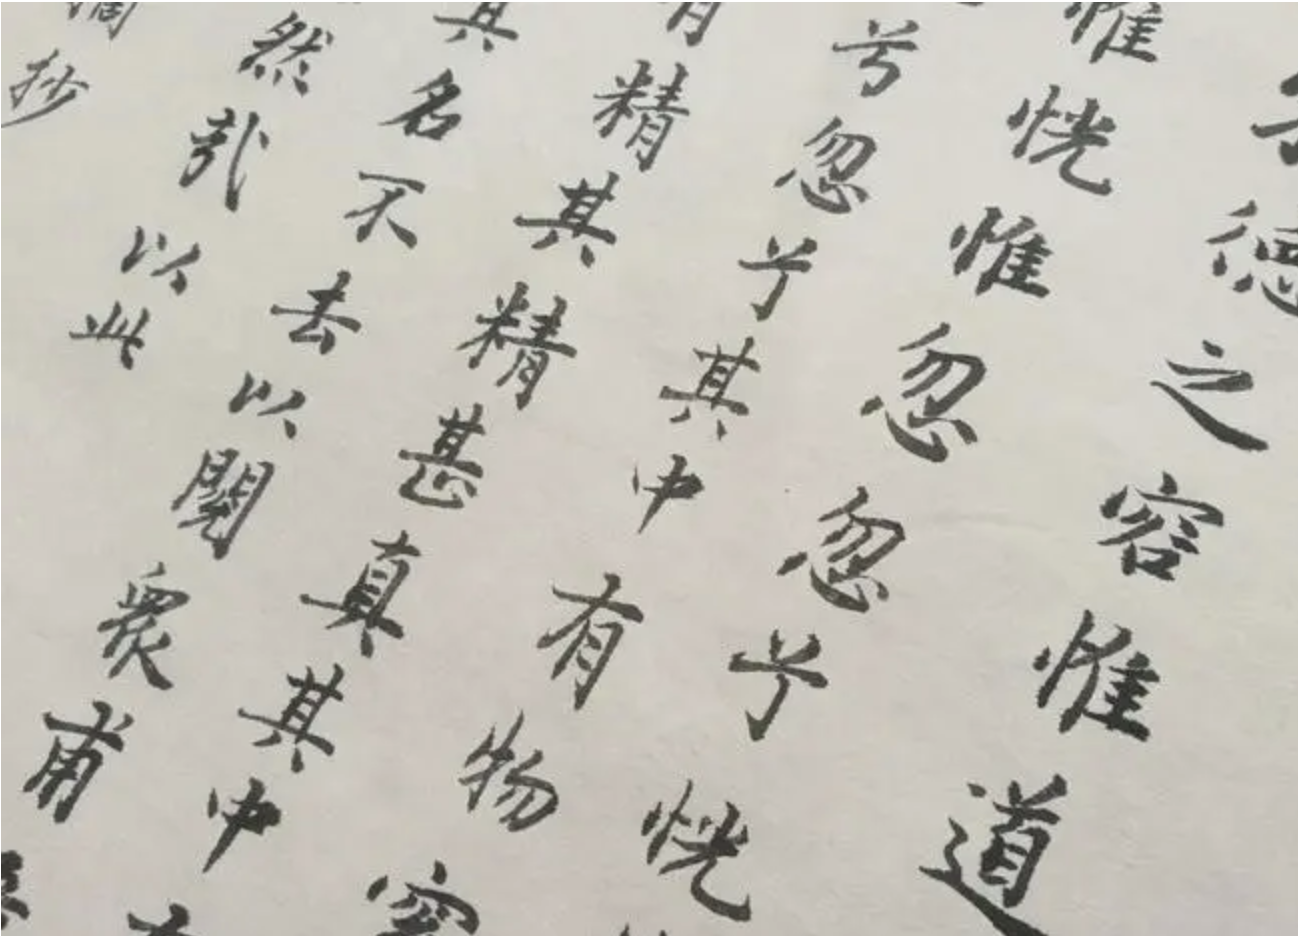 德之容惟道
惟恍惟忽忽兮恍
兮忽兮其中有物
有精其精甚真其中
其名不去以閱衆甫
然哉以此
抄